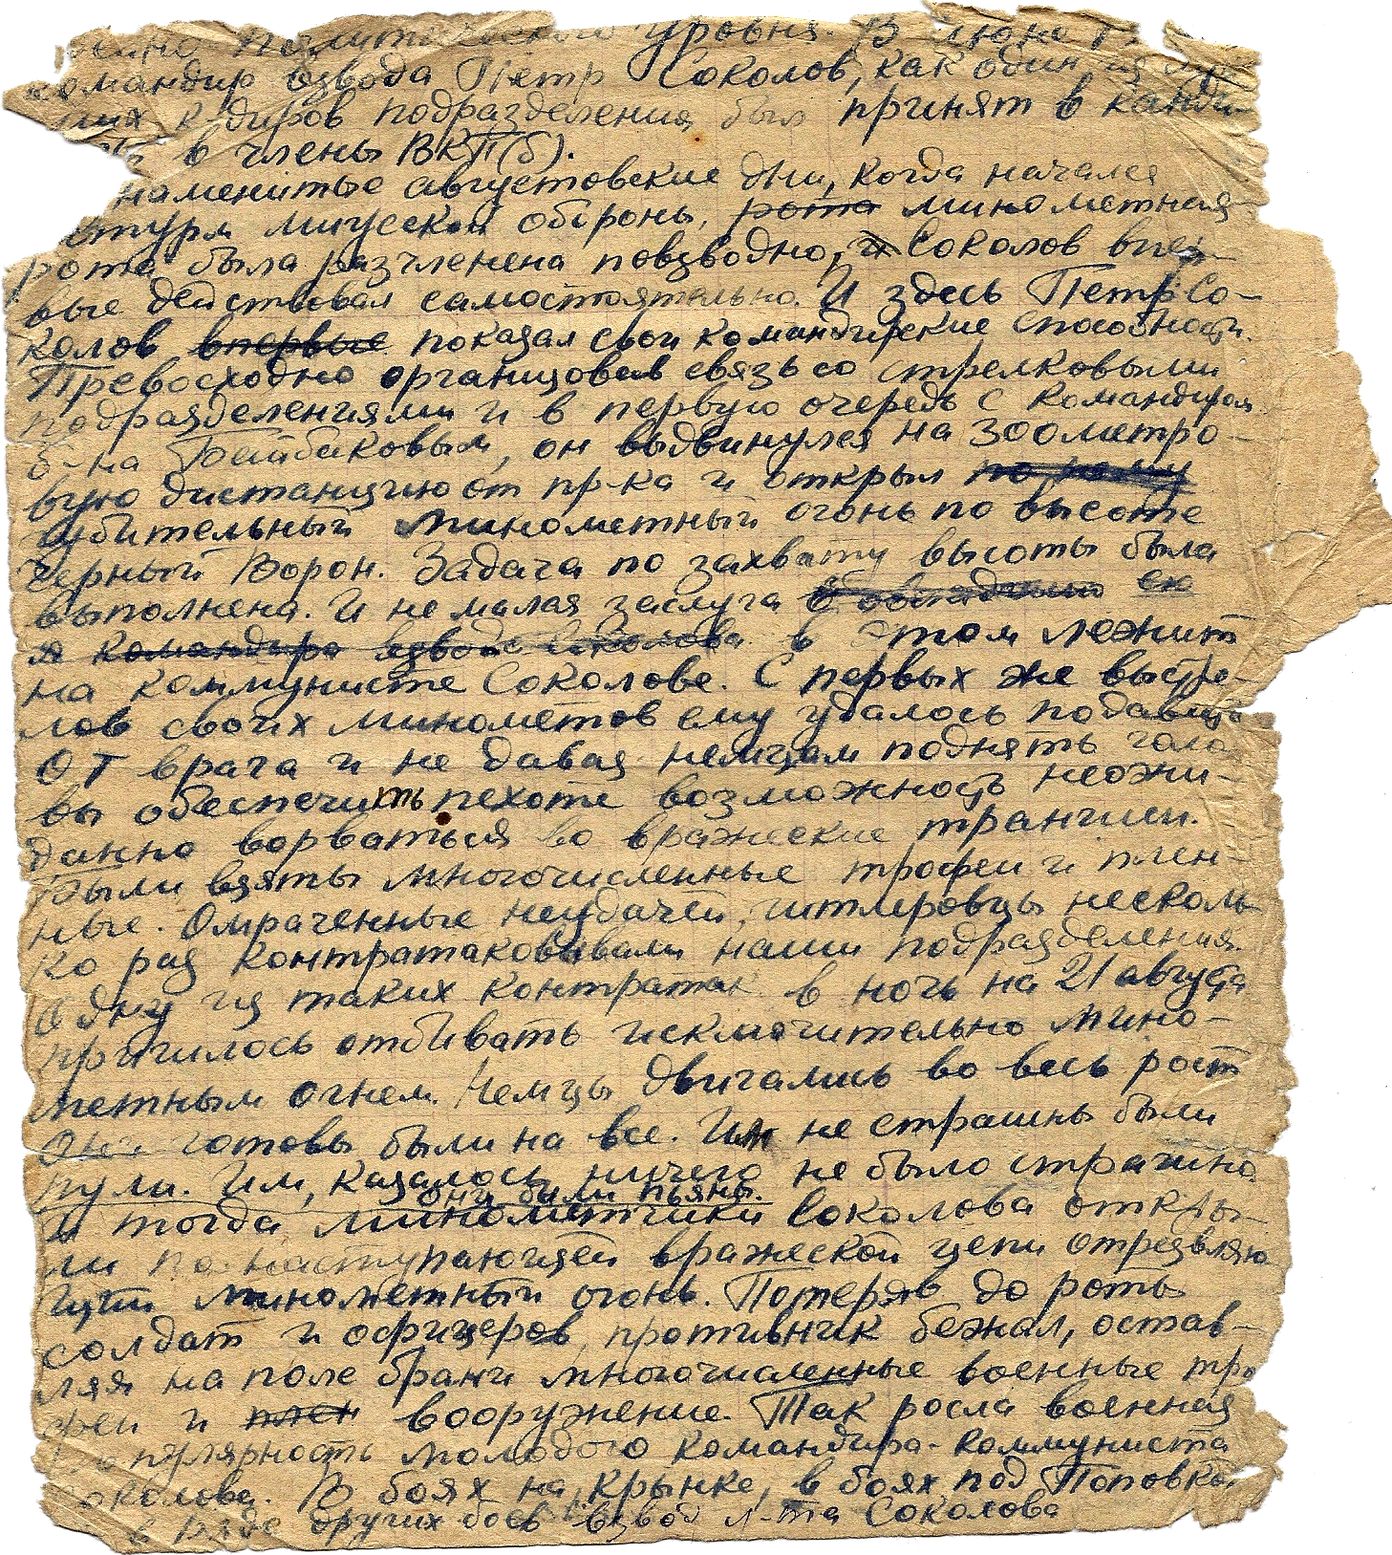 политического уровня. В июне
командир взвода Петр Соколов, как один из
кадров подразделения был принят в канди-
в члены ВКП(б).
знаменитые августовские дни, когда начался
штурм миусской обороны, рота минометная
рота была разчленена повзводно, и Соколов впер-
вые действовал самостоятельно. И здесь Петр Со-
колов впервые показал свои командирские способности.
Превосходно организовав связь со стрелковыми
подразделениями и в первую очередь с командиром
б-на Байбаковым, он выдвинулся на 300 метро-
вую дистанцию от пр-ка и открыл по нему
губительный минометный огонь по высоте
Черный Ворон. Задача по захвату высоты была
выполнена. И не малая заслуга в овладении ею
я командира взвода Соколова в этом лежит
на коммунисте Соколове. С первых же выстре-
лов своих минометов ему удалось подавить
ОТ врага и не давая немцам поднять голо-
вы обеспечить пехоте возможность неожи-
данно ворваться во вражеские траншеи.
Были взяты многочисленные трофеи и плен-
ные. Омраченные неудачей, гитлеровцы несколь-
ко раз контратаковывали наши подразделения.
Одну из таких контратак в ночь на 21 августа
пришлось отбивать исключительно мино-
метным огнем. Немцы двигались во весь рост
Они готовы были на все. Им не страшны были
пули. Им, казалось, ничего не было страшно
они были пьяны.
и тогда минометчики Соколова откры-
ли по наступающей вражеской цепи отрезвляю
щий минометный огонь. Потеряв до роты
солдат и офицеров, противник бежал, остав-
ляя на поле брани многочисленные военные тро
феи и плен вооружение. Так росла военная
популярность молодого командира-коммуниста
Соколова. В боях на Крынке, в боях под Поповкой
в ряде других боев взвод л-та Соколова